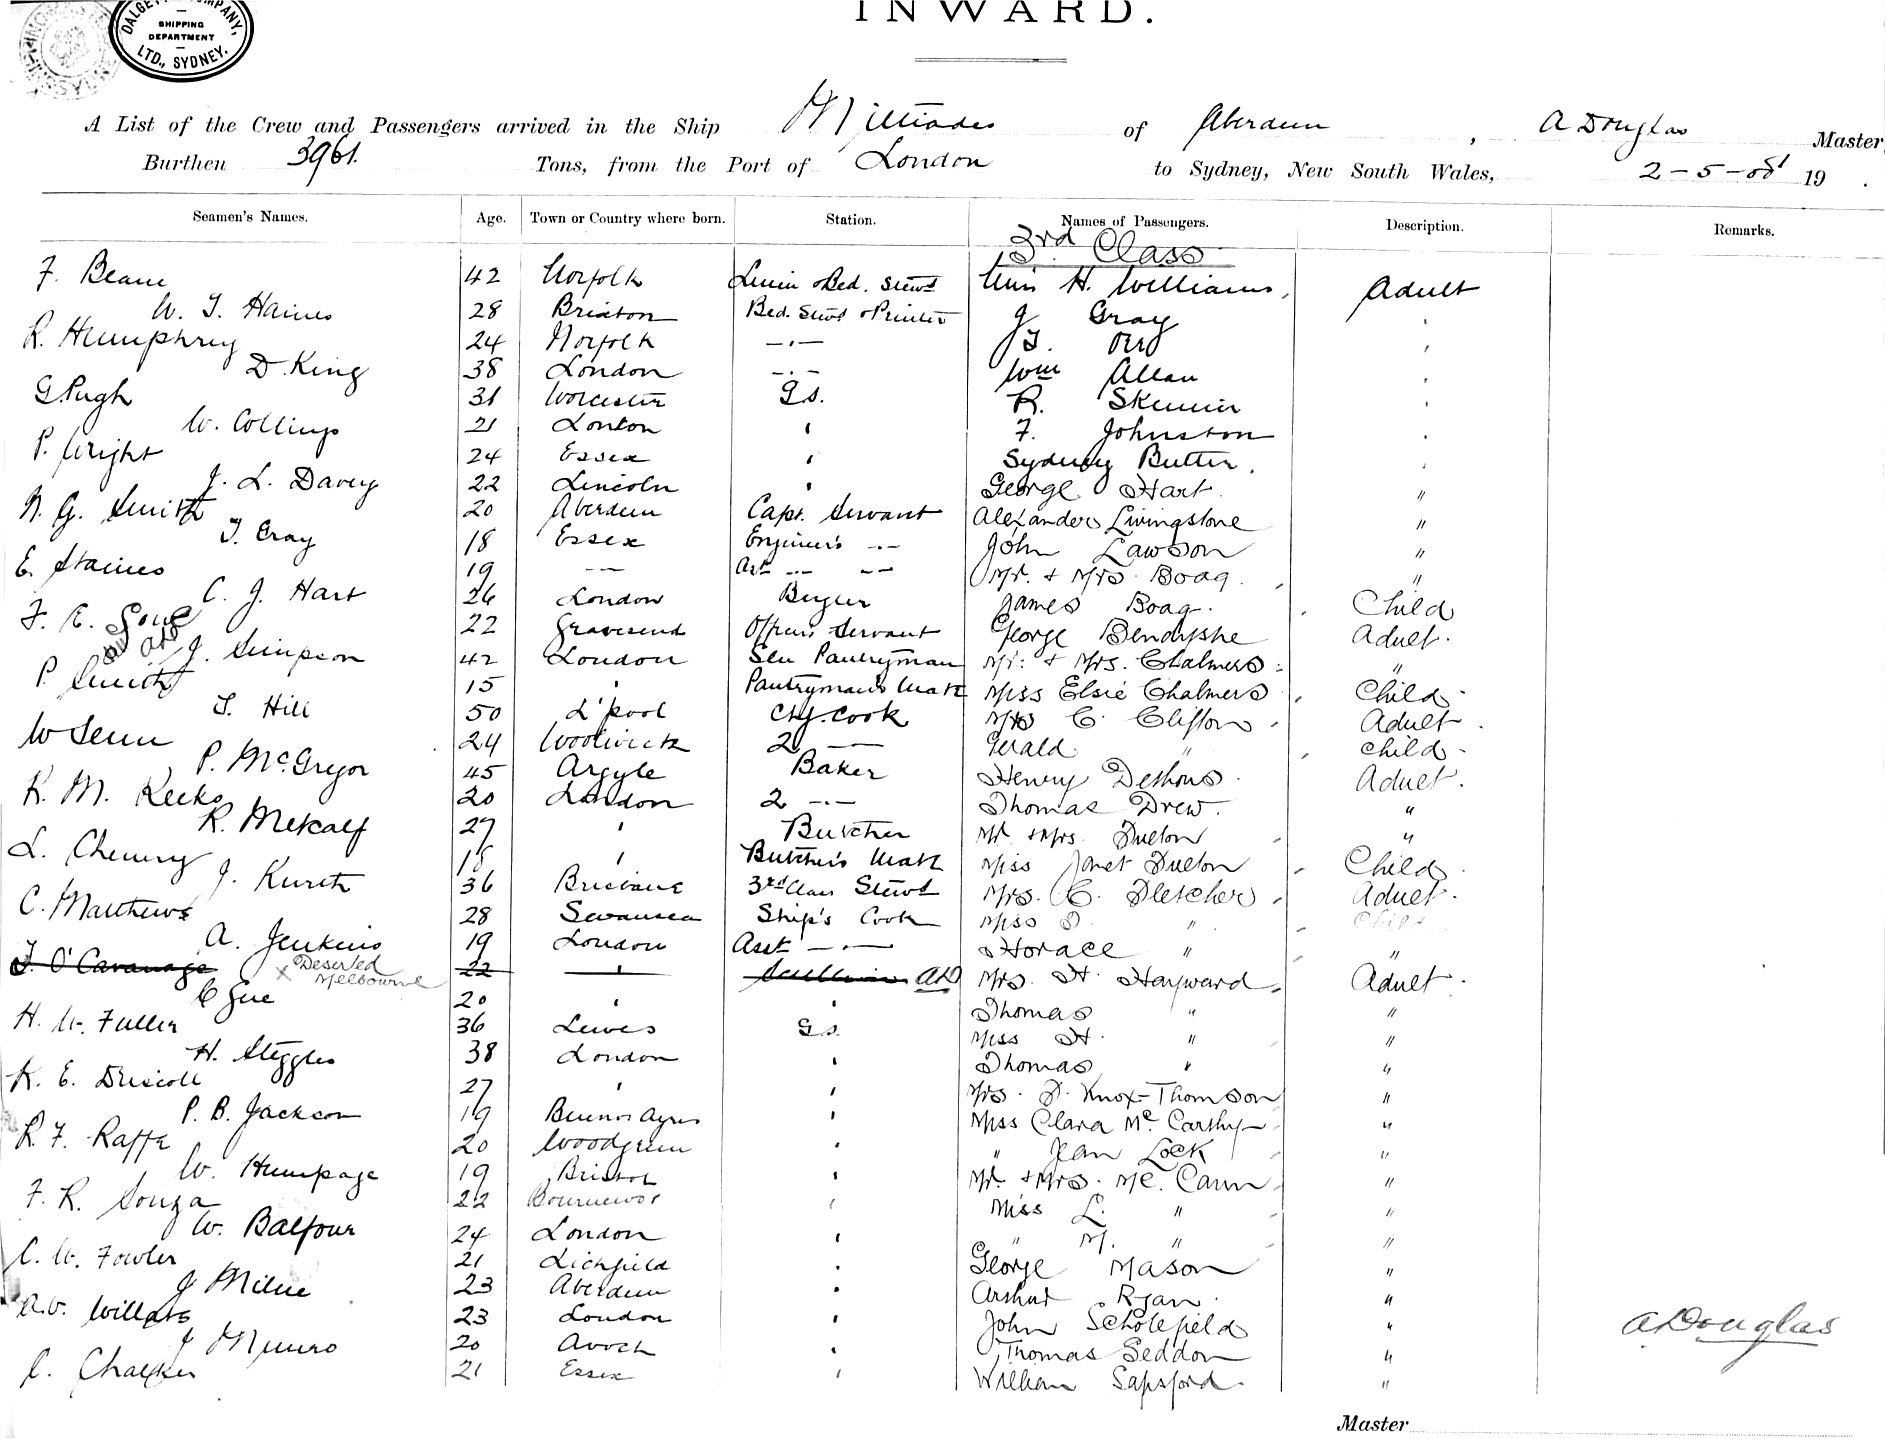 INWARD.
DALGETY & COMPANY, LTD., SYDNEY.
SHIPPING DEPARTMENT
A List of the Crew and Passengers arrived in the Ship Miltiades of Aberdeen, A Douglas Master
Burthen 3961. Tons, from the Port of London to Sydney, New South Wales, 2-5-08 19 .
Seamen's Names. Age. Town or Country where born. Station. Names of Passengers. Description. Remarks.
3rd Class
F. 42 Norfolk Bed. Stewd H. Williams. Adult
W. T. Haines 28 Brixton Bed. Stewd & Printer J Gray
R. Humphrey 24 Norfolk —.— J. Orr
D. King 38 London —.— Wm Allan
G. Pugh 31 Worcester G.S. R.
W. Collings 21 London ' F. Johnston
P. Wright 24 Essex ' Sydney Butter.
J. L. Davey 22 Lincoln ' George Hart. "
N. G. Smith 20 Aberdeen Capt. Servant Alexander Livingstone "
T. Cray 18 Essex Engineer's -.- John Lawson "
E. Staines 19 —— Ast -.- -.- Mr. & Mrs. Boag. "
C. J. Hart 26 London Bugler James Boag. Child
F. E. 22 Gravesend Officers Servant George Bendyshe Adult.
J. Simpson 42 London Pantryman Mr. & Mrs. Chalmers "
P. Smith 15 ' Pantryman's Mate Miss Elsie Chalmers Child
T. Hill 50 L'pool Chf. Cook Mrs C. Clifton Adult
W 24 Woolwich 2 —— Gerald " Child
P. McGregor 45 Argyle Baker Henry Adult.
R. M. 20 London 2 -.- Thomas Drew. "
R. Metcalf 27 ' Butcher Mr. & Mrs. "
L. 18 ' Butcher's Mate Miss Janet Child
J. 36 Brisbane 3rd Class Stewd Mrs. C. Fletcher Adult.
C. Matthews 28 Swansea Ship's Cook Miss " Child
A. Jenkins 19 London Asst —.— Horace " "
T. O'Cavanage x Deserted Melbourne 22 ' Scullion AD Mrs. H. Hayward Adult
C 20 ' ' Thomas " "
H. W. Fuller 36 Lewes G.S. Miss H. " "
H. Steggles 38 London ' Thomas " "
K. E. Driscoll 27 ' ' Mrs. Knox-Thomson "
P. B. Jackson 19 Buenos Ayres ' Miss Clara McCarthy "
R. F. Raffe 20 Woodgreen ' " Jean Lock "
W. Humpage 19 Bristol ' Mr. & Mrs. Mc. Cann "
F. R. Souza 22 ' Miss L. " "
W. Balfour 24 London ' " M. " "
C. W. Fowler 21 Lichfield ' George Mason "
J Milne 23 Aberdeen ' Arthur Ryan. "
A. V. 23 London ' John Scholefield "
J Munro 20 Avoch ' Thomas Seddon "
C. Chalker 21 Essex ' William Sapsford. "
A Douglas
Master